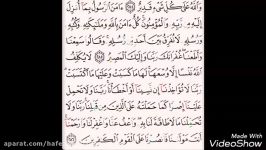 وَاللَّهُ عَلَىٰ كُلِّ شَيْءٍ قَدِيرٌ ﴿٢٨٤﴾ آمَنَ الرَّسُولُ بِمَا أُنزِلَ
إِلَيْهِ مِن رَّبِّهِ وَالْمُؤْمِنُونَ كُلٌّ آمَنَ بِاللَّهِ وَمَلَائِكَتِهِ وَكُتُبِهِ
وَرُسُلِهِ لَا نُفَرِّقُ بَيْنَ أَحَدٍ مِّن رُّسُلِهِ وَقَالُوا سَمِعْنَا
وَأَطَعْنَا غُفْرَانَكَ رَبَّنَا وَإِلَيْكَ الْمَصِيرُ ﴿٢٨٥﴾ لَا يُكَلِّفُ
اللَّهُ نَفْسًا إِلَّا وُسْعَهَا لَهَا مَا كَسَبَتْ وَعَلَيْهَا مَا اكْتَسَبَتْ
رَبَّنَا لَا تُؤَاخِذْنَا إِن نَّسِينَا أَوْ أَخْطَأْنَا رَبَّنَا وَلَا تَحْمِلْ
عَلَيْنَا إِصْرًا كَمَا حَمَلْتَهُ عَلَى الَّذِينَ مِن قَبْلِنَا رَبَّنَا وَلَا
تُحَمِّلْنَا مَا لَا طَاقَةَ لَنَا بِهِ وَاعْفُ عَنَّا وَاغْفِرْ لَنَا وَارْحَمْنَا
أَنتَ مَوْلَانَا فَانصُرْنَا عَلَى الْقَوْمِ الْكَافِرِينَ ﴿٢٨٦﴾
Made With
VideoShow
aparat.com/hafe